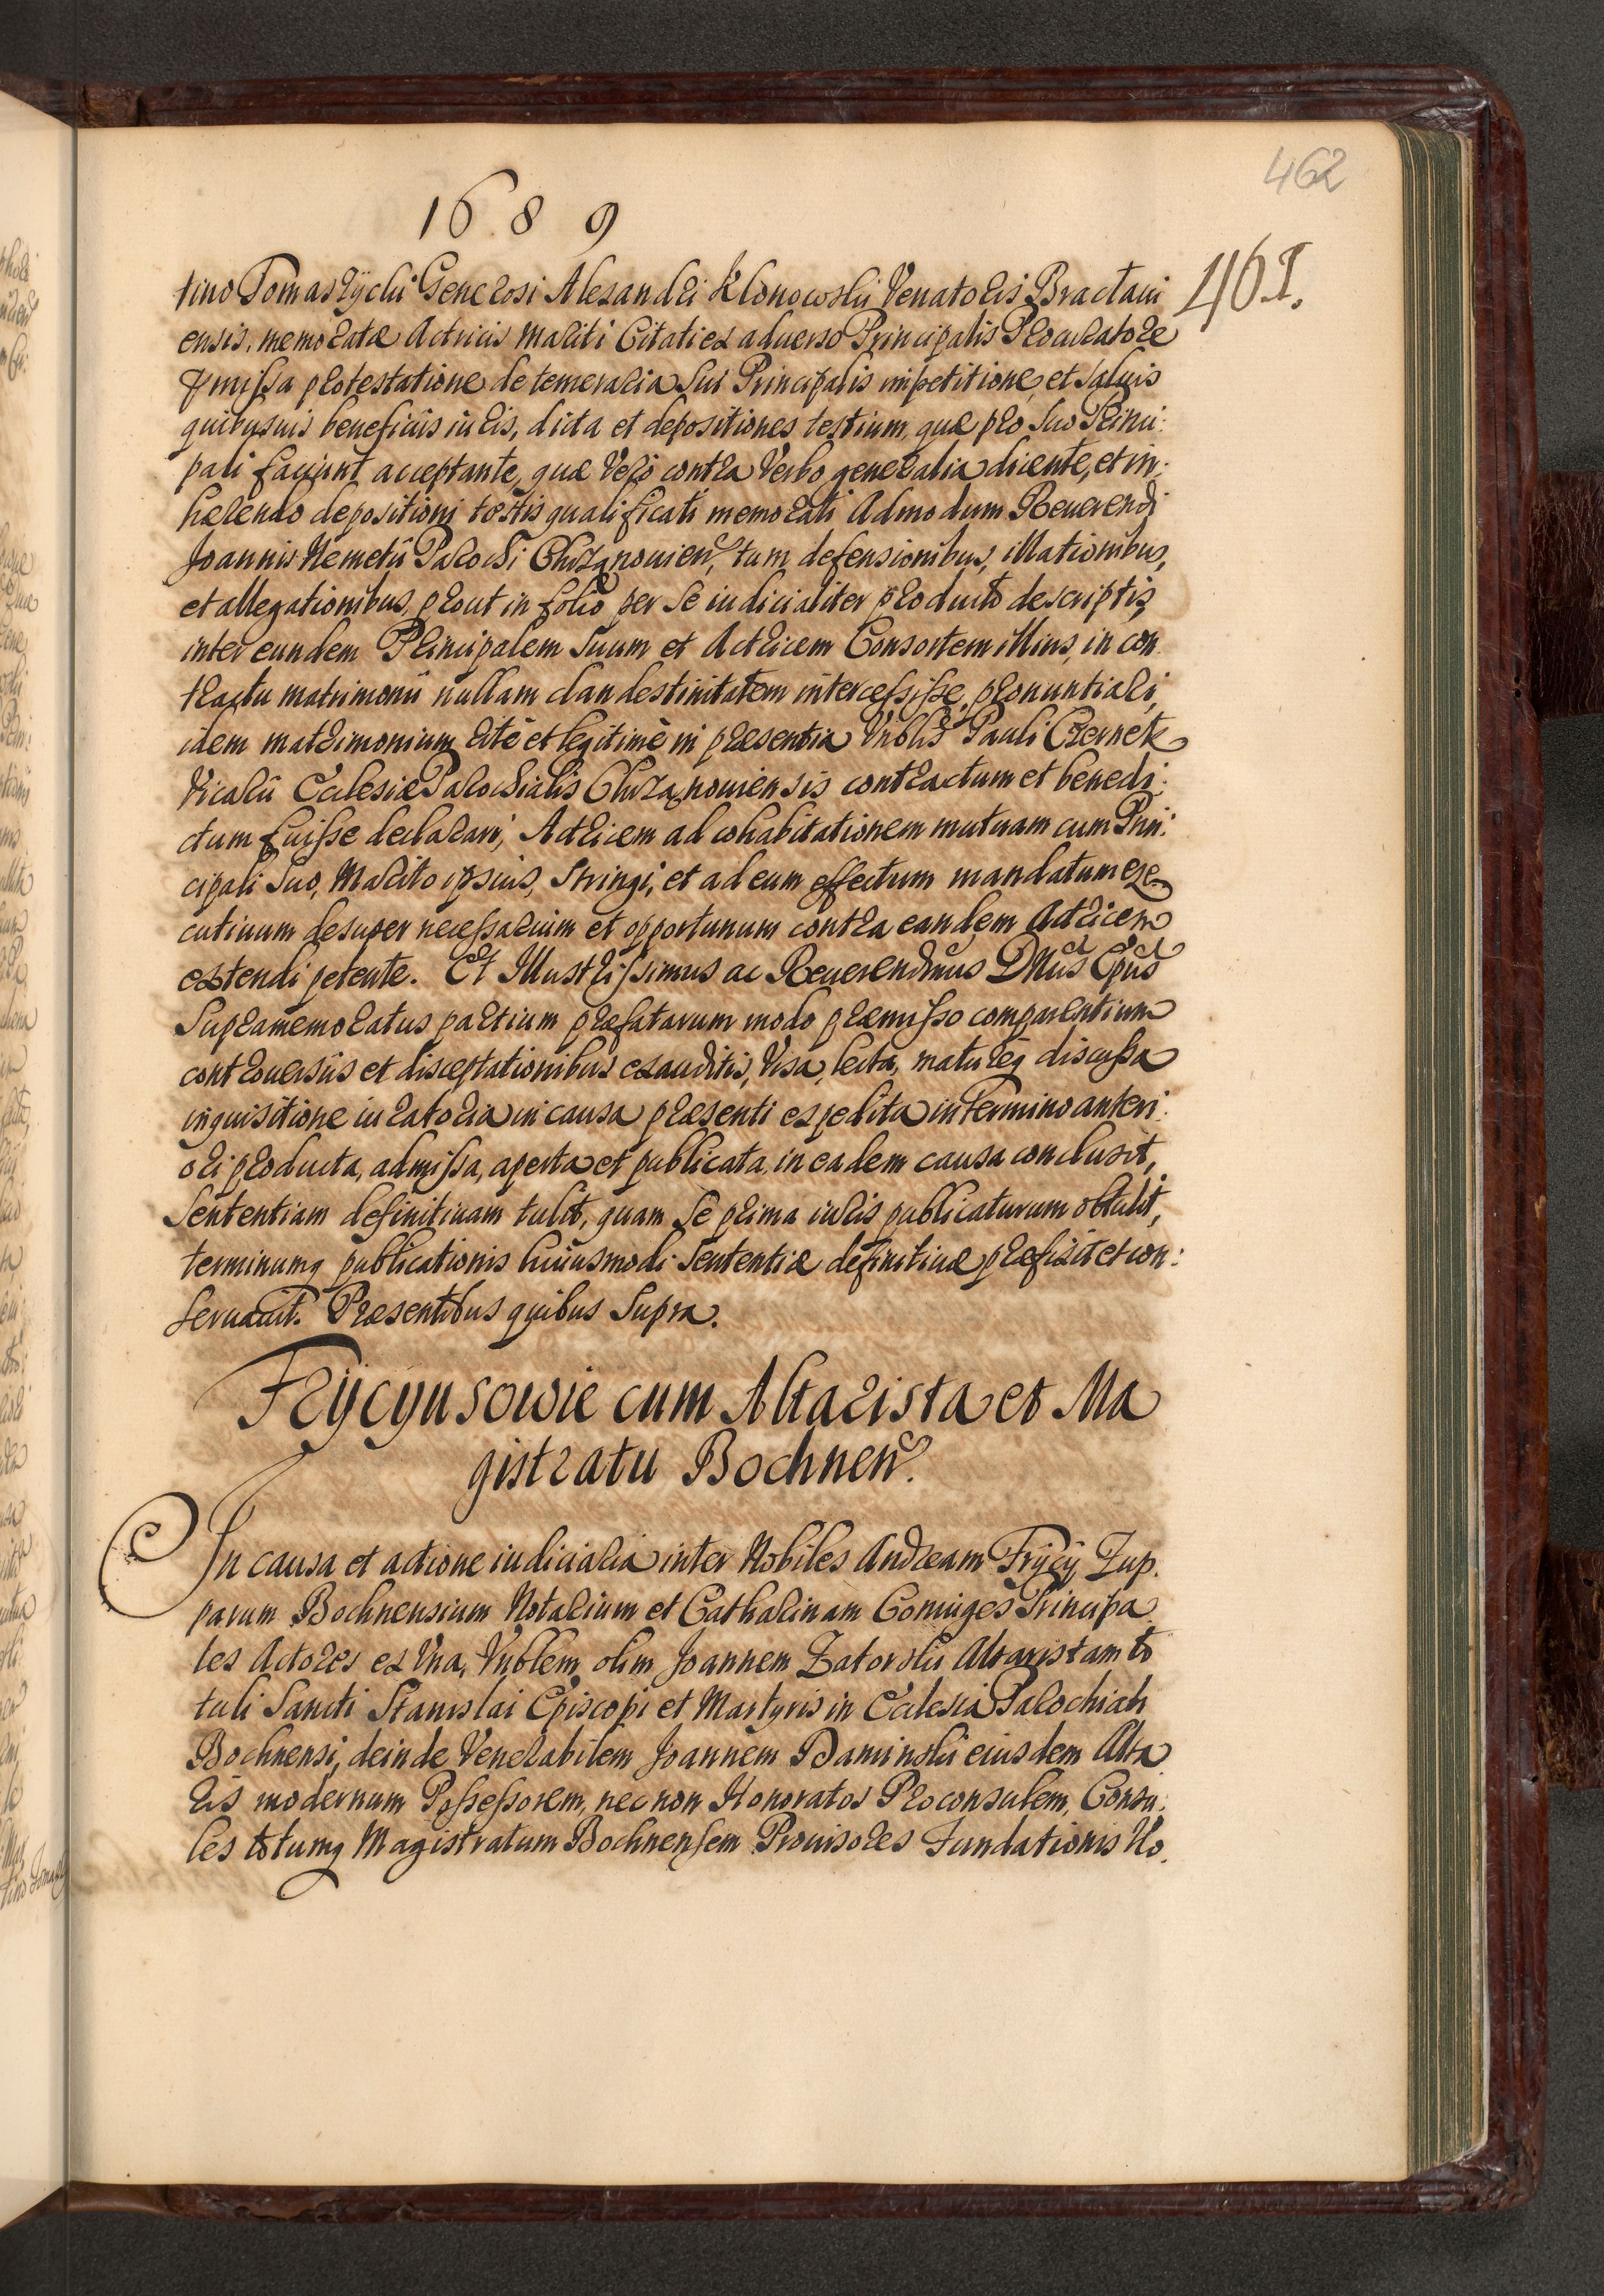 462
1689
461.
tino Tomaszÿcki Generosi Alexandri Klonowski Venatoris Bractaui
ensis, memoratæ Actricis mariti Citati ex aduerso Principalis Procuratore
præmissa protestatione de temeraria Sui Principalis impetitione, et saluis
quibusuis beneficiis iuris, dicta et depositiones testium, quæ pro suo Princi:
pali faciunt acceptante, quæ Verò contra Verbo generalia dicente, et in:
hærendo depositioni testis qualificati memorati Admodum Reuerendi
Joannis Nemetii Parochi Chrzanouien, tum defensionibus, illationibus,
et allegationibus, prout in folio per se iudicialiter producto descriptis,
inter eundem Principalem suum et Actricem Consortem illius, in con
tractu matrimonii nullam clandestinitatem intercessisse, pronuntiari,
idem matrimonium ritè et legitimè in præsentia Vnblis Pauli Czernek
Vicarii Ecclesiæ Parochialis Chrzanouiensis contractum et benedi:
ctum fuisse declarari, Actricem ad cohabitationem mutuam cum Prin:
cipali suo, Marito ipsius, stringi, et ad eum effectum mandatum exe
cutiuum desuper necessarium et opportunum contra eandem Actricem
extendi petente. Et Illustrissimus ac Reuerendmus Dnus Epus
Supramemoratus partium præfatarum modo præmisso comparentium
controuersiis et disceptationibus exauditis, Visa, lecta, matureq discussa
inquisitione iuratoria in causa præsenti expedita in Termino anteri:
ori producta, admissa, aperta et publicata, in eadem causa conclusit,
Sententiam definitiuam tulit, quam se prima iuris publicaturum obtulit,
terminumq publicationis huiusmodi Sententiæ definitiuæ præfixit et con:
seruauit. Præsentibus quibus Supra.
Frÿcyusowie cum Altarista et Ma
gistratu Bochnen.
In causa et actione iudiciaria inter Nobiles Andream Frÿcÿ Zup.
parum Bochnensium Notarium et Catharinam Coniuges Principa
les Actores ex Vna, Vnblem olim Joannem Zatorski Altaristam ti
tuli Sancti Stanislai Episcopi et Martyris in Ecclesia Parochiali
Bochnensi, deinde Venerabilem Joannem Daminski eiusdem Alta
ris modernum Possessorem, nec non Honoratos Proconsulem, Consu:
les totumq Magistratum Bochnensem Prouisores Fundationis No.